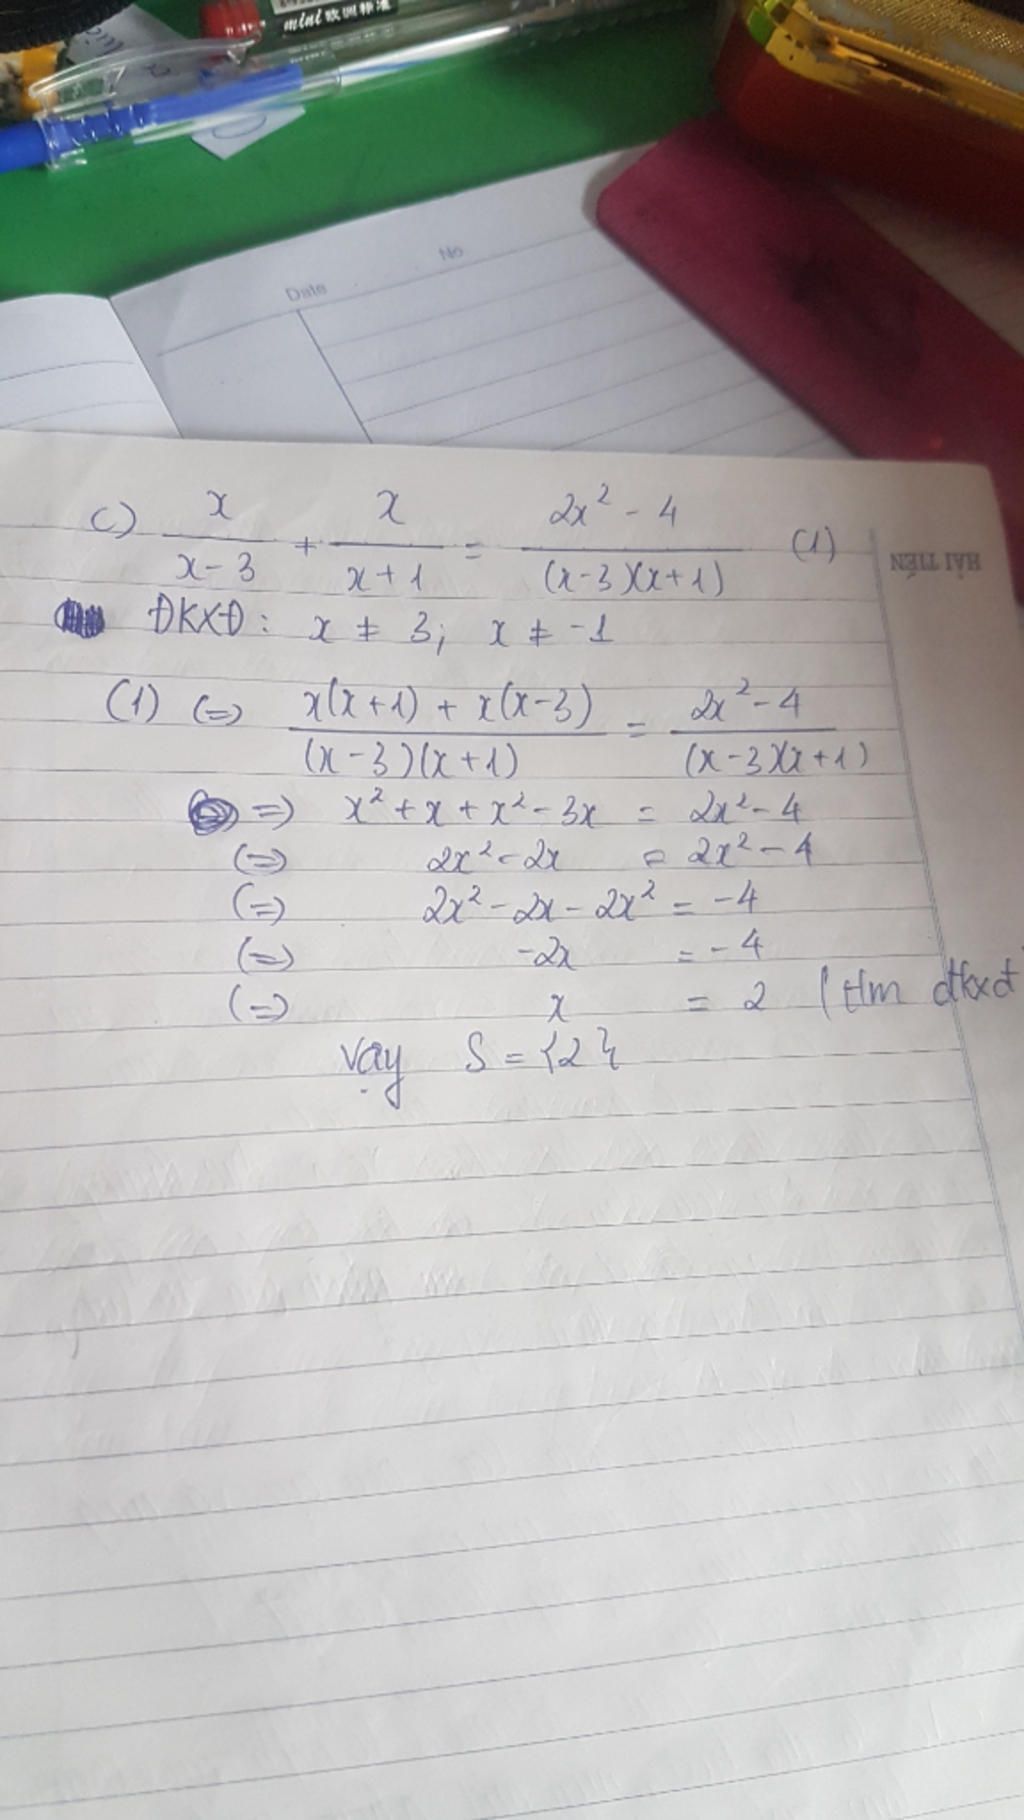 mini 欧洲标准
No
Date
HẢI TIẾN
c) x/(x-3) + x/(x+1) = (2x² - 4)/((x-3)(x+1)) (1)
ĐKXĐ: x ≠ 3; x ≠ -1
(1) (=) (x(x+1) + x(x-3))/((x-3)(x+1)) = (2x² - 4)/((x-3)(x+1))
=) x² + x + x² - 3x = 2x² - 4
(=) 2x² - 2x = 2x² - 4
(=) 2x² - 2x - 2x² = -4
(=) -2x = -4
(=) x = 2 (tlm đkxđ
vậy S = {2}